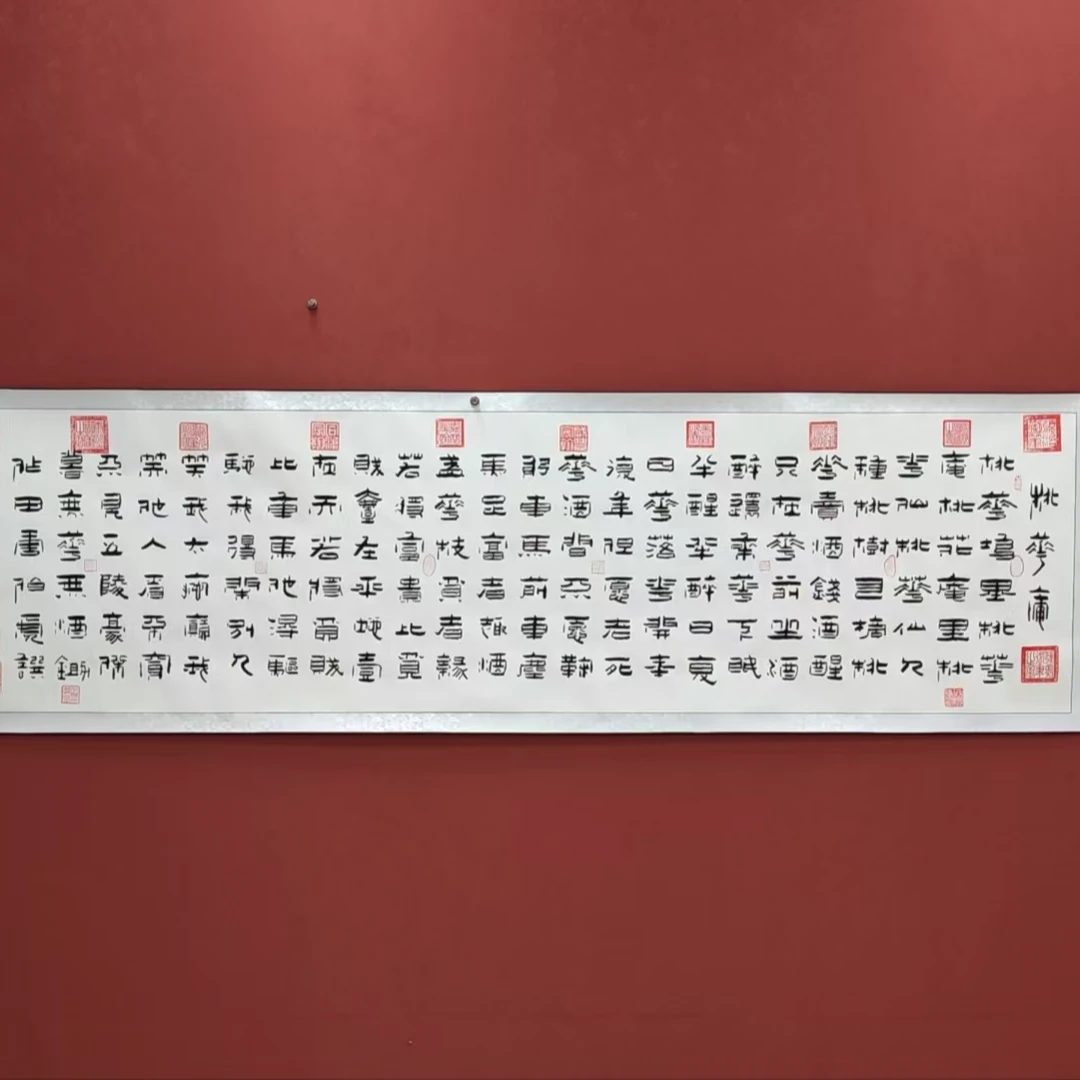 桃華庵
桃華塢里桃華
庵桃花庵里桃
華仙桃華仙人
種桃樹且摘桃
華賣酒錢酒醒
只在華前坐酒
醉還來華下眠
半醒半醉日復
日華落華開年
復年但願老死
華酒間不願鞠
躬車馬前車塵
馬足富者趣酒
盞華枝貧者緣
若將富貴比貧
賤壹在平地壹
在天若將貧賤
比車馬他得驅
馳我得閑別人
笑我太瘋癲我
笑他人看不穿
不見五陵豪傑
墓無華無酒鋤
作田唐伯虎譔